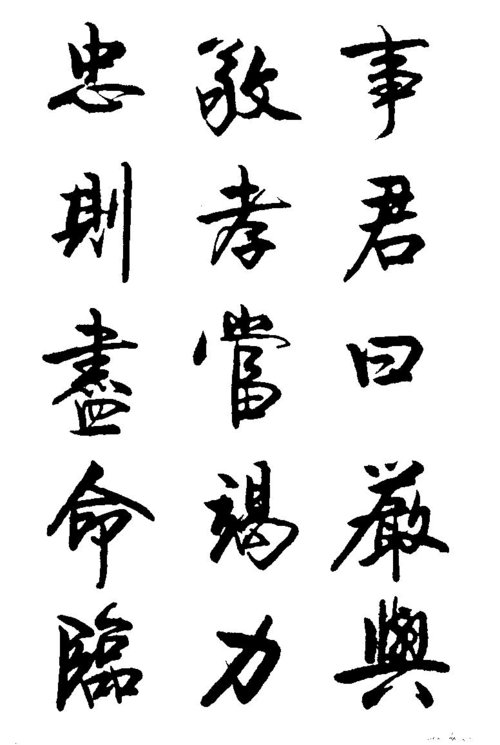 事君曰嚴與
敬孝當竭力
忠則盡命臨